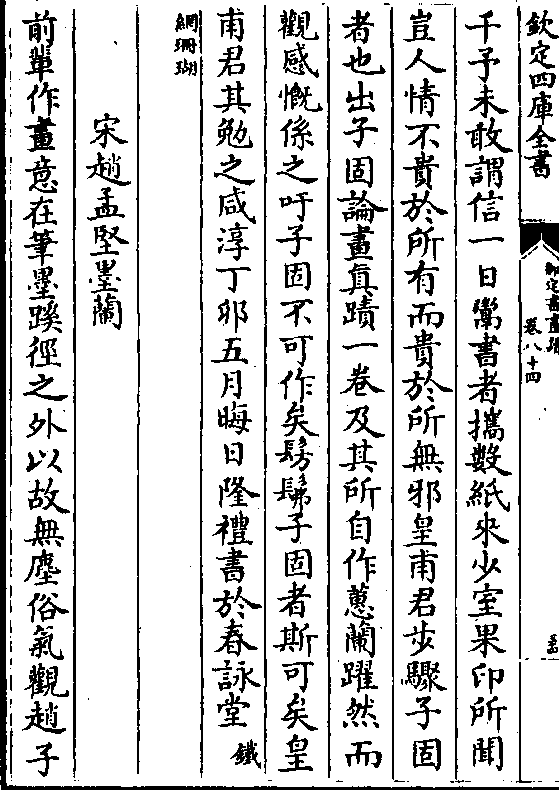 欽定四庫全書
卷八十四
千予未敢謂信一日鬻書者攜數紙來少室果印所聞
豈人情不貴於所有而貴於所無邪皇甫君步驟子固
者也出子固論畫真蹟一卷及其所自作蕙蘭躍然而
觀感慨係之吁子固不可作矣髣髴子固者斯可矣皇
甫君其勉之咸淳丁卯五月晦日隆禮書於春詠堂 鐵
網珊瑚
宋趙孟堅墨蘭
前軰作畫意在筆墨蹊徑之外以故無塵俗氣觀趙子